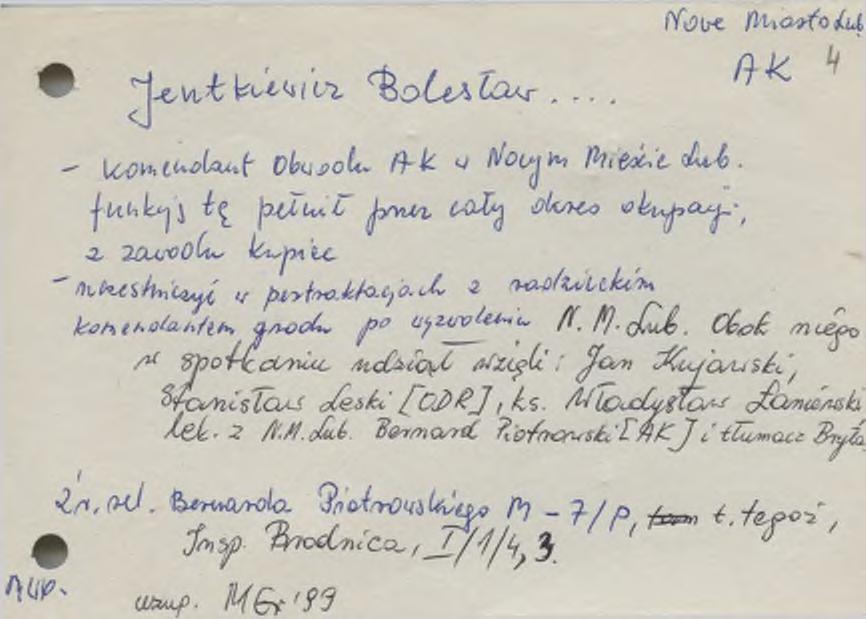 Nowe Miasto Lub
AK 4
Jentkiewicz Bolesław....
- komendant Obwodu AK w Nowym Mieście Lub.
funkcję tę pełnił przez cały okres okupacji,
z zawodu kupiec
- uczestniczył w pertraktacjach z radzieckim
komendantem grodu po wyzwoleniu N.M.Lub. Obok niego
w spotkaniu udział wzięli: Jan Kujawski,
Stanisław Leski [ODR], ks. Władysław Łaniewski
lek. z N.M.Lub. Bernard Piotrowski [AK] i tłumacz Bryła
Źr. rel. Bernarda Piotrowskiego M-7/P, tam t. tegoż,
Insp. Brodnica, I/1/4, 3.
uzup. MGr '99